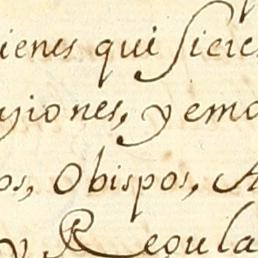 ienes qui siere
siones, y emo
os, Obispos, A
y Regula